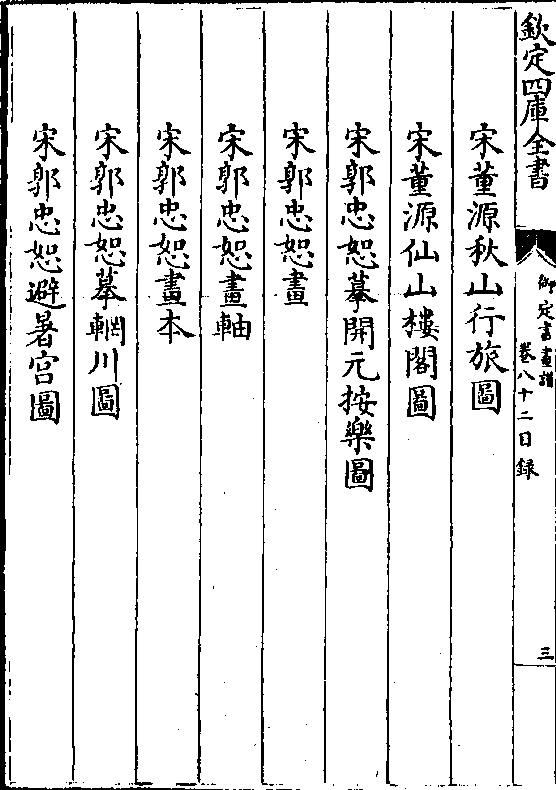 欽定四庫全書
御定書畫譜
卷八十二目錄
三
宋董源秋山行旅圖
宋董源仙山樓閣圖
宋郭忠恕摹開元按樂圖
宋郭忠恕畫
宋郭忠恕畫軸
宋郭忠恕畫本
宋郭忠恕摹輞川圖
宋郭忠恕避暑宮圖